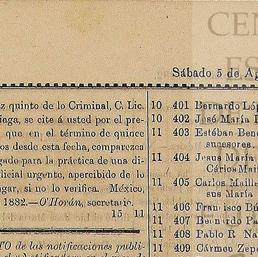 CEN
ES
Sábado 5 de Ag
z quinto de lo Criminal, C. Lic.
iaga, se cite á usted por el pre-
que en el término de quince
os desde esta fecha, comparezca
gado para la práctica de una di-
licial urgente, apercibido de lo
ugar, si no lo verifica. México,
1882.—O'Horán, secretario.
15 11
TO de las notificaciones publi-
10 401 Bernardo Lóp
10 402 José María E
11 403 Estéban Bene
sucesores.
11 404 Jesus María
Cárlos Mair
11 405 Carlos Maille
sus María
11 406 Francisco Bú
11 407 Bernardo Pa
11 408 Pablo R. Na
11 409 Cármen Zepe